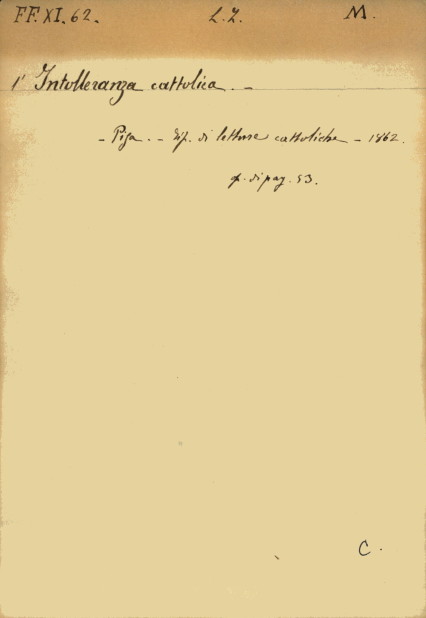 FF. XI. 62. L. Z. M.
l' Intolleranza cattolica. -
- Pisa. - Tip. di letture cattoliche - 1862.
op. di pag. 53.
C.